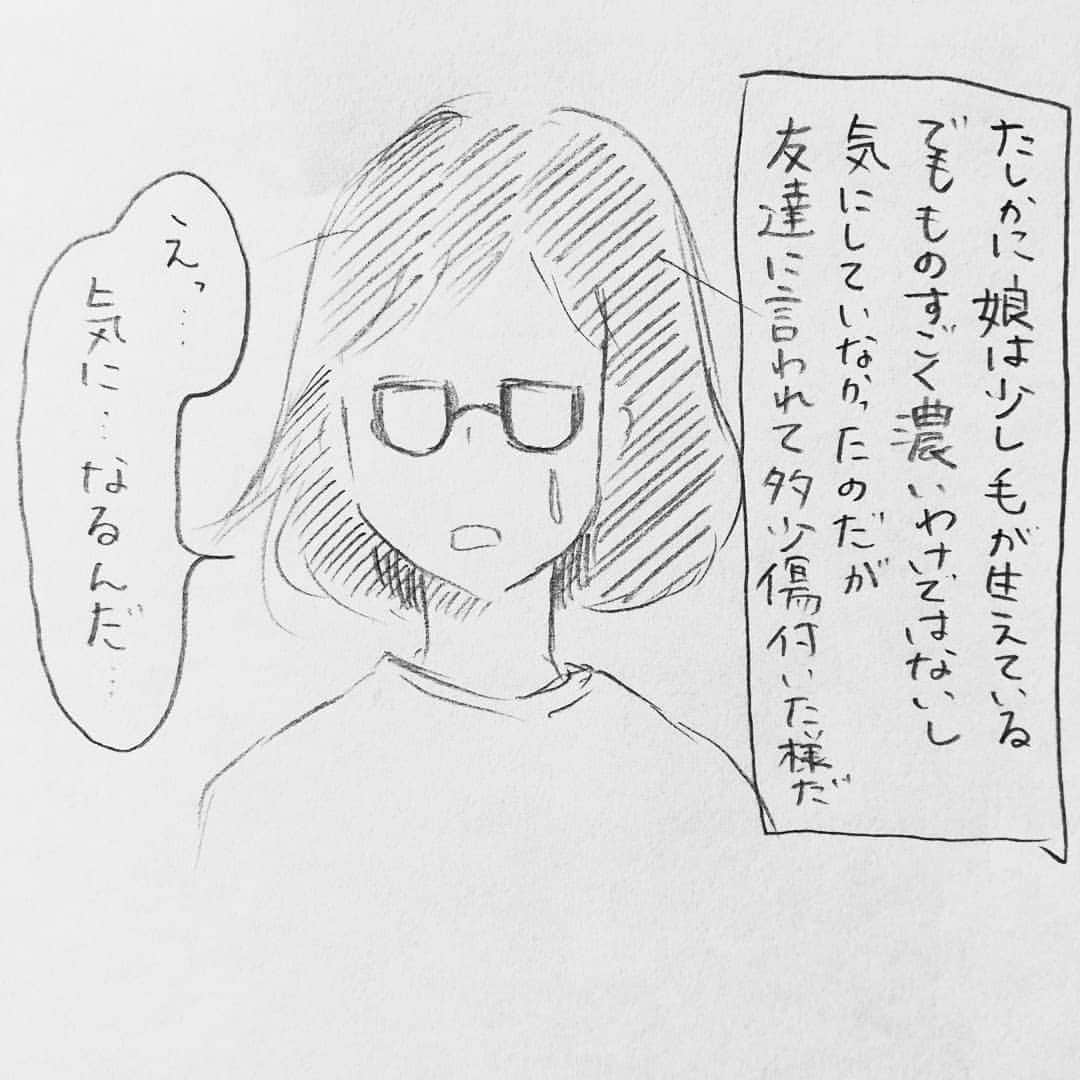 たしかに娘は少し毛が生えている
でもものすごく濃いわけではないし
気にしていなかったのだが
友達に言われて多少傷付いた様だ
えっ…
気に…なるんだ…